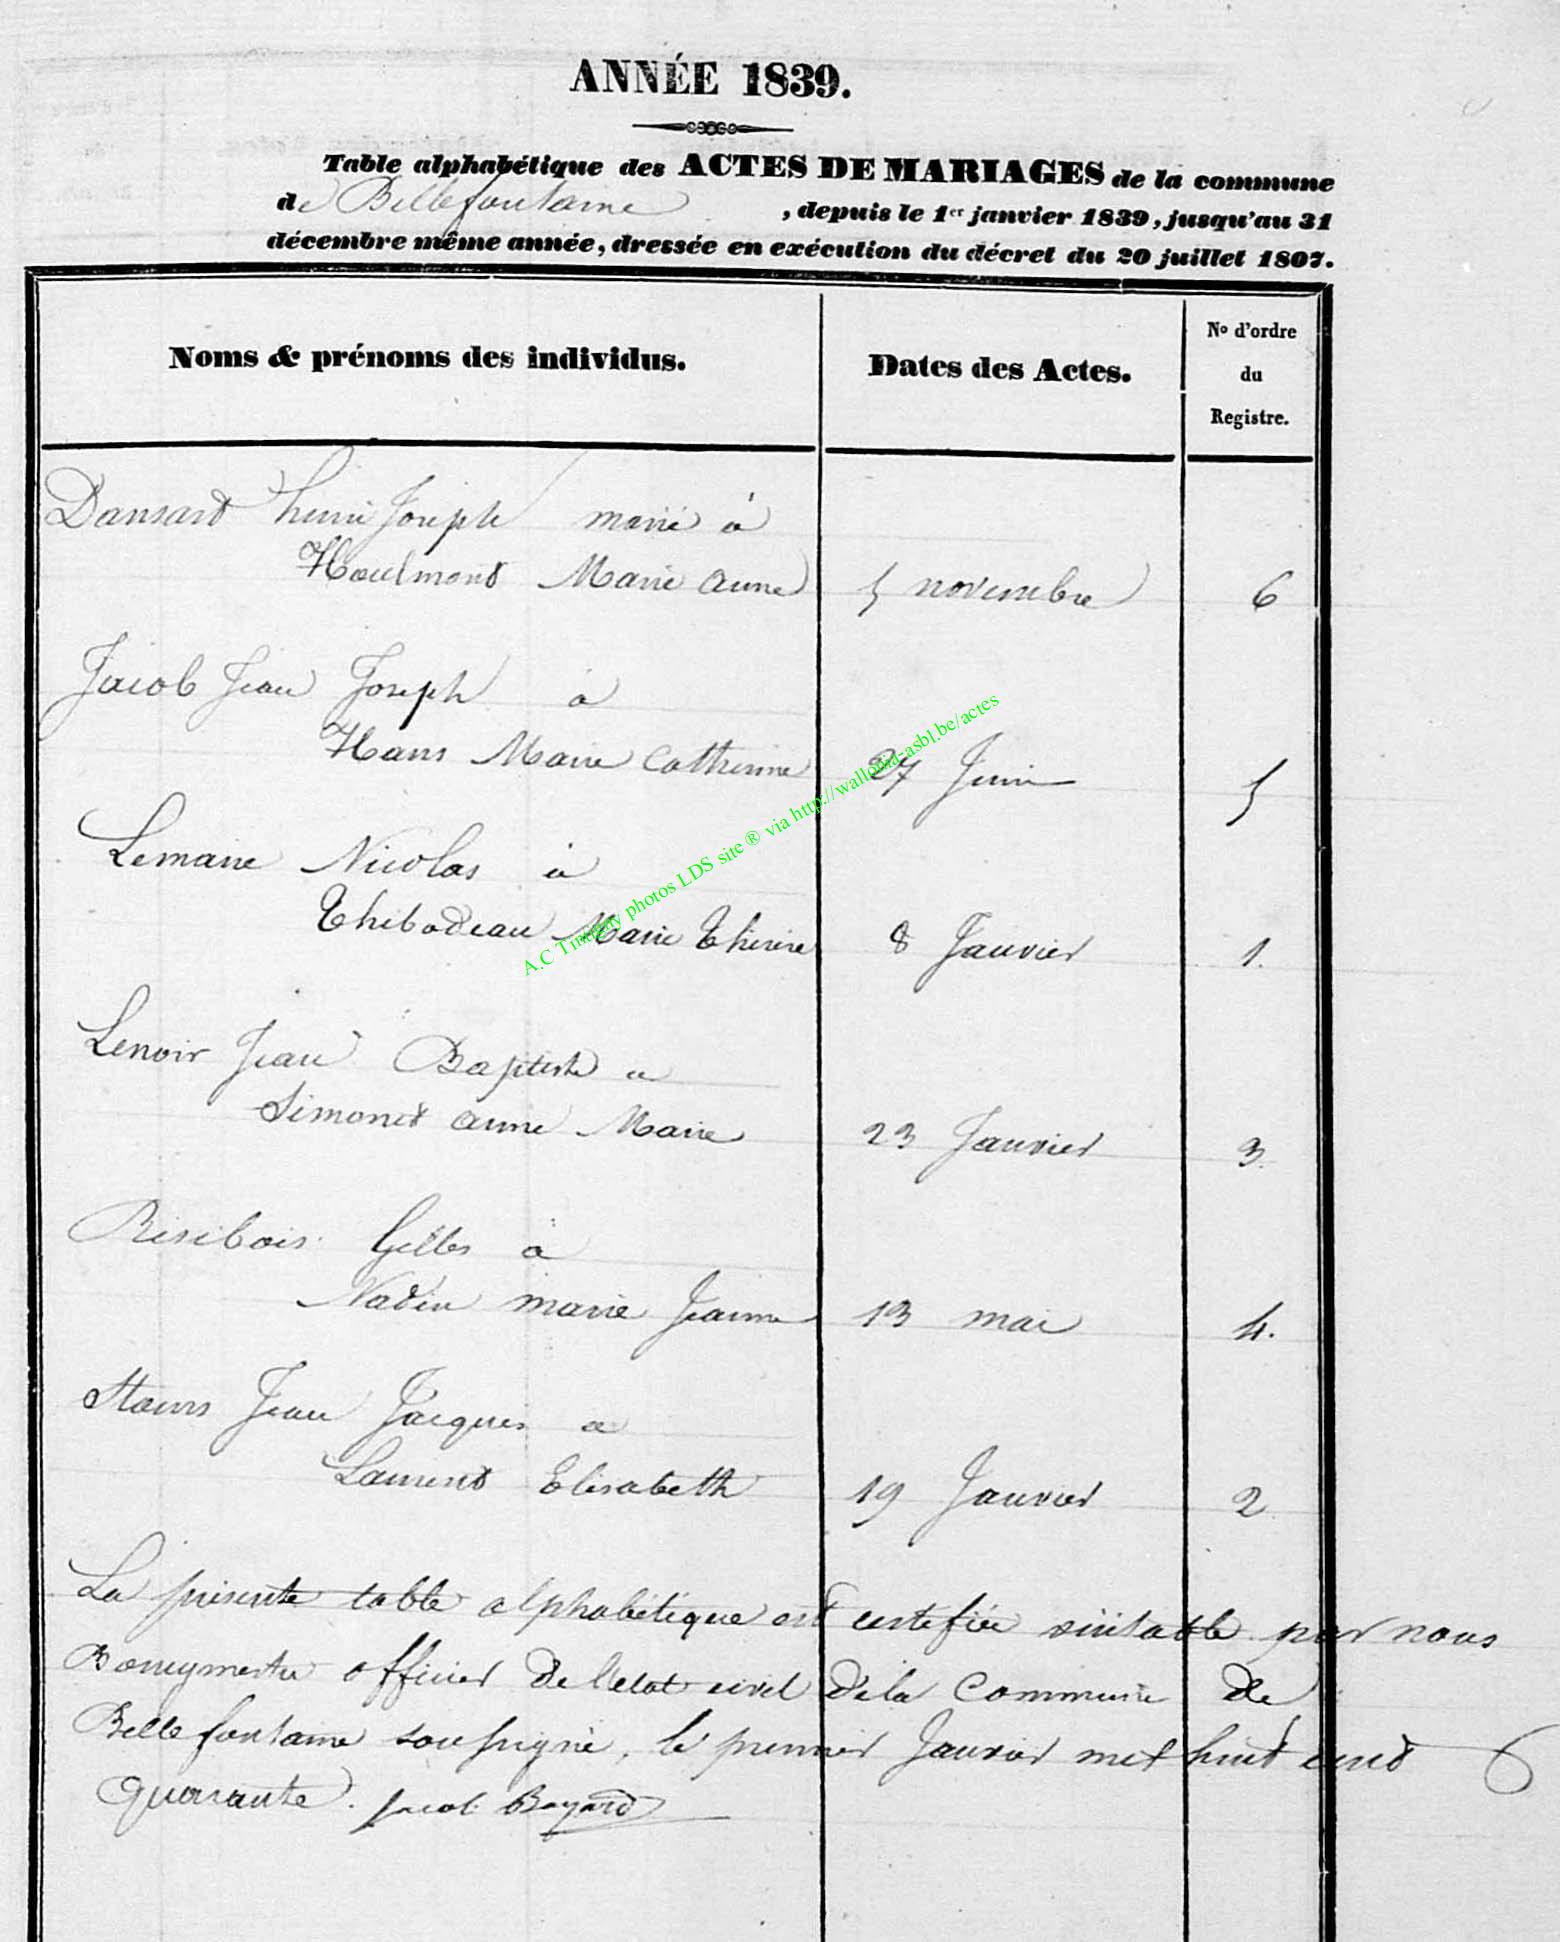 ANNÉE 1839.
Table alphabétique des ACTES DE MARIAGES de la commune
de Bellefontaine , depuis le 1er janvier 1839, jusqu'au 31
décembre même année, dressée en exécution du décret du 20 juillet 1807.
Noms & prénoms des individus. Dates des Actes. No d'ordre du Registre.
Dansart henri Joseph marié à
Houlmont Marie anne 5 novembre 6
Jacob Jean Joseph à
Hans Marie Catherine 27 Juin 5
Lemaire Nicolas à
Thibodeau Marie Thérèse 8 Janvier 1.
Lenoir Jean Baptiste a
Simonet anne Marie 23 Janvier 3.
Risibois Gilles à
Nadin marie Jeanne 13 mai 4.
Jean Jacques a
Laurent Elisabeth 19 Janvier 2
La présente table alphabétique est certifiée véritable par nous
Bourgmestre officier de l'etat civil de la Commune de
Bellefontaine soussigné, le premier Janvier mil huit cent
quarante. Jacob Bayard
A.C Tintigny photos LDS site ® via http://wallonia-asbl.be/actes